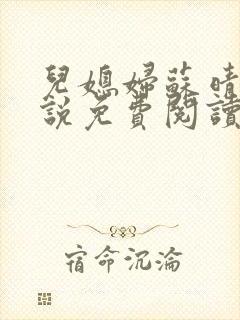 兒媳婦蘇晴
說免費閱讀
宿命沉淪